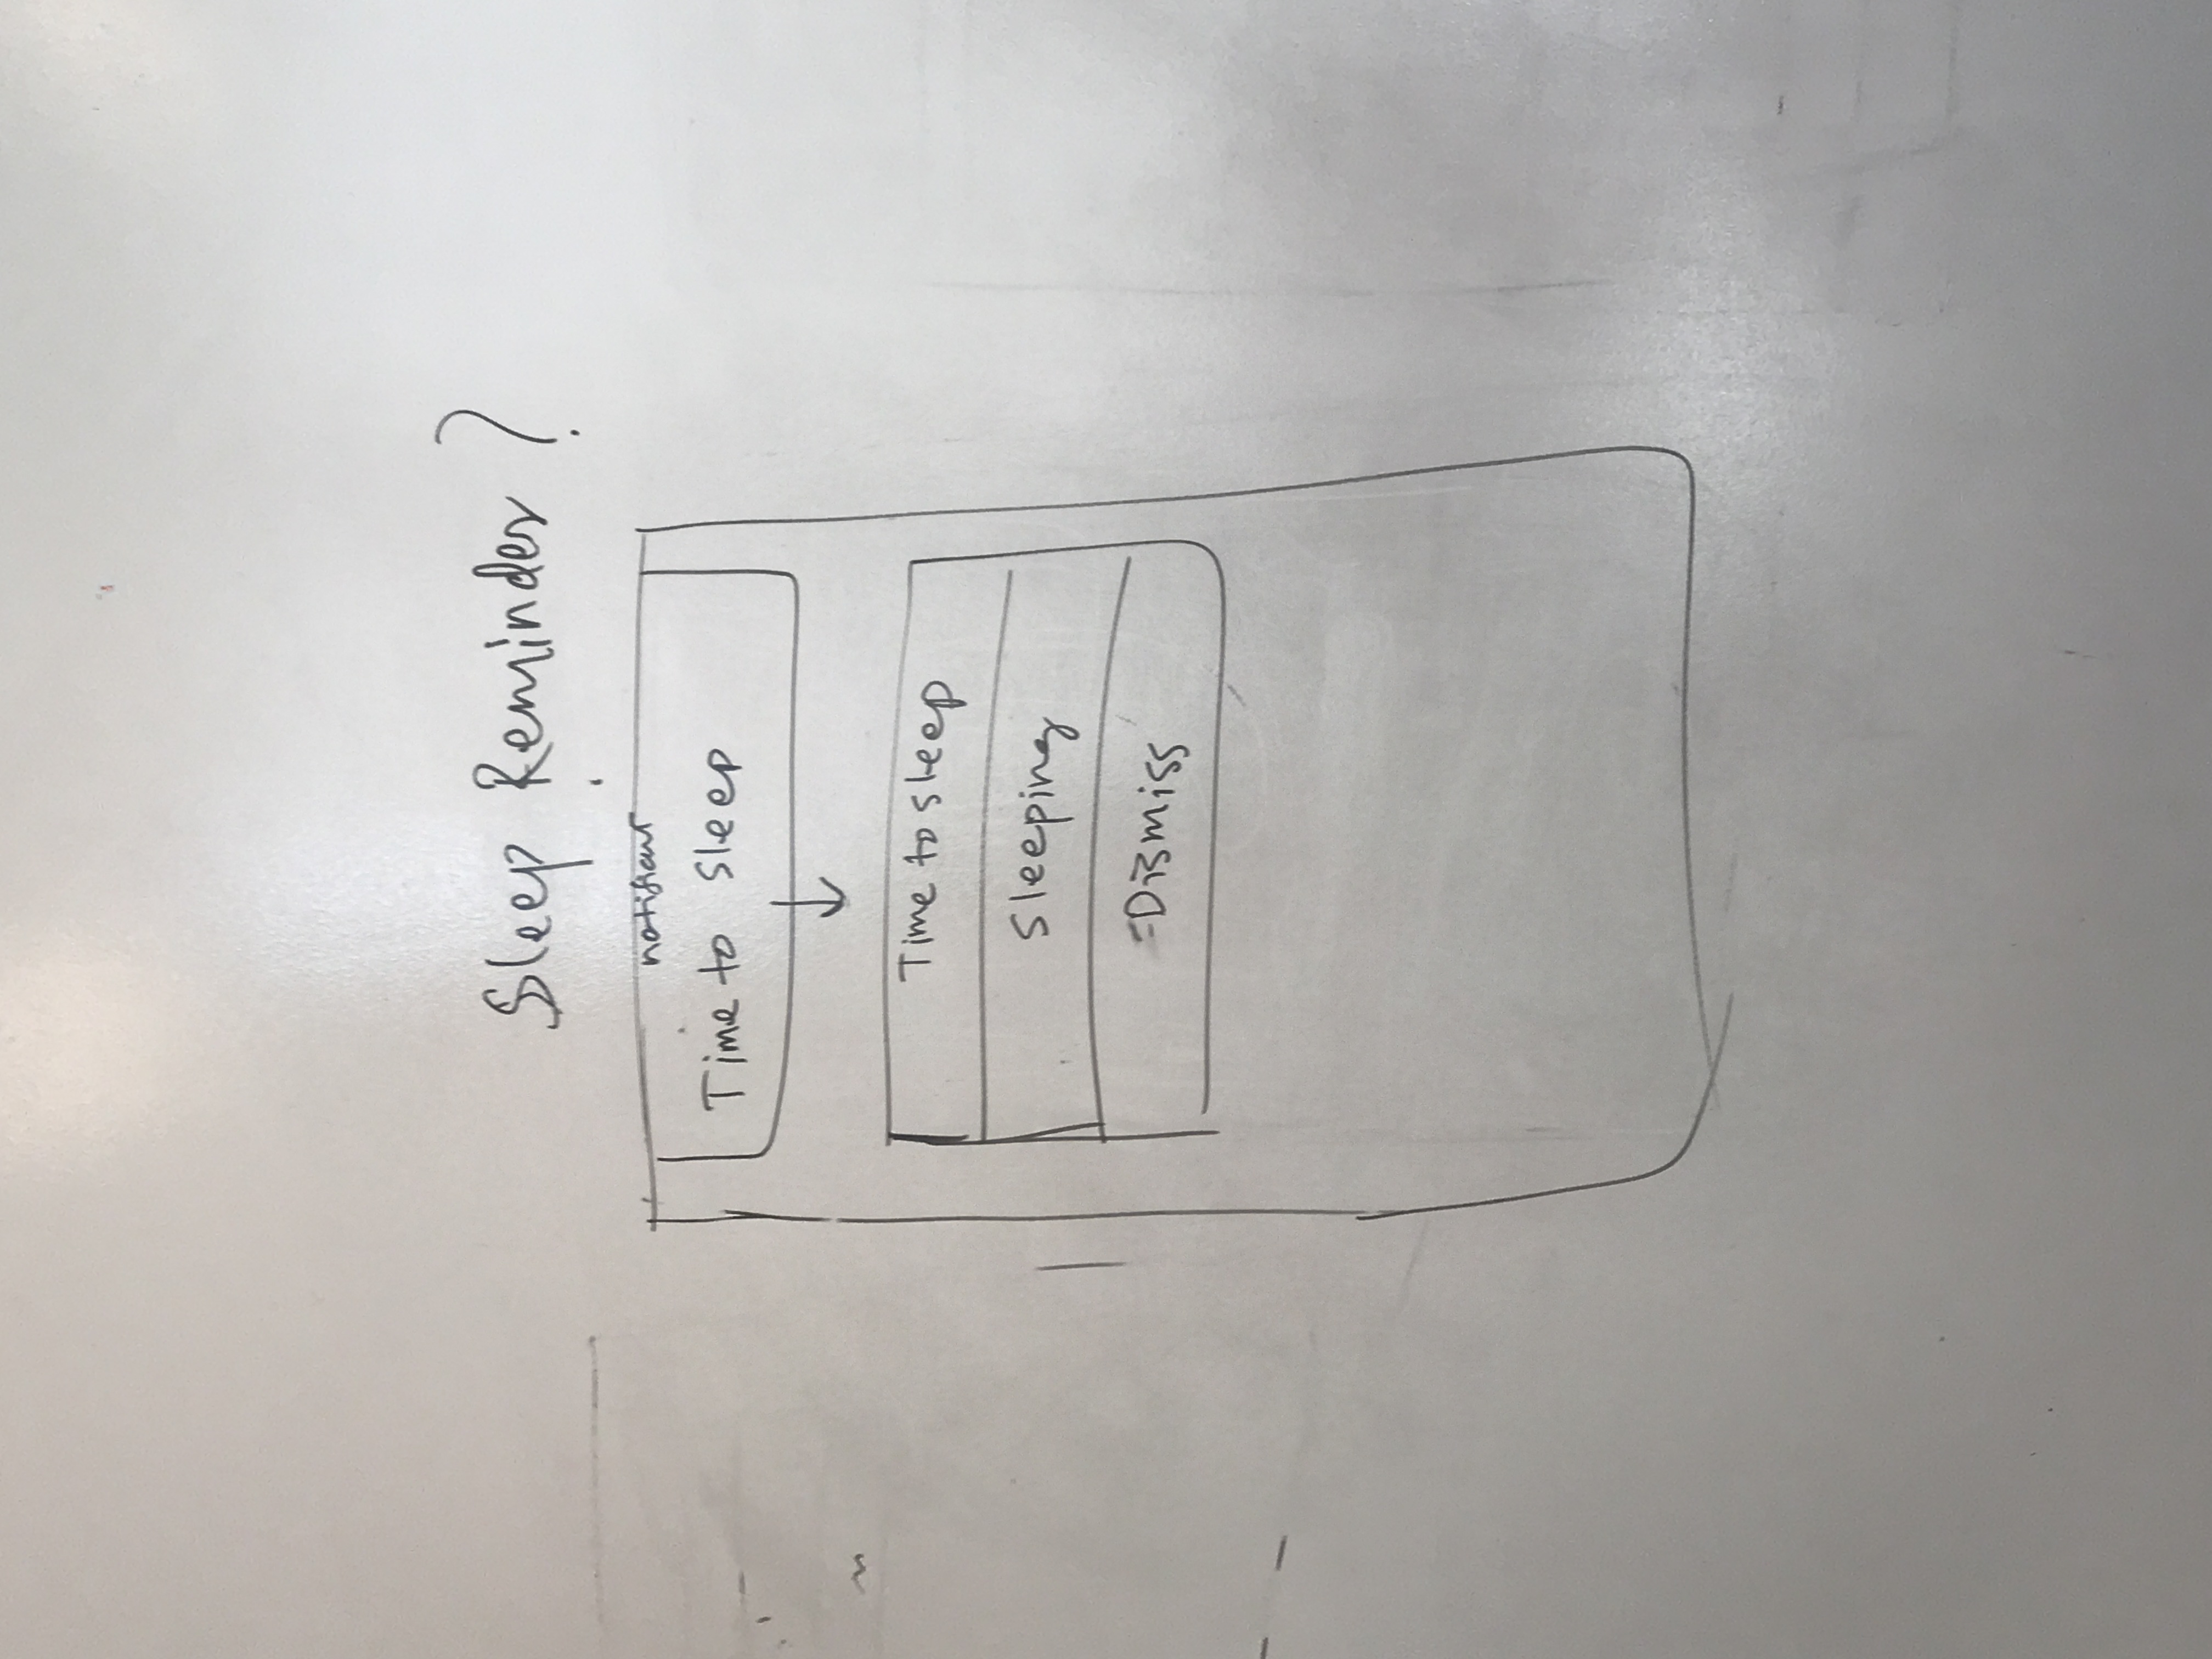 Sleep Reminder ?
Time to sleep
Time to sleep
Sleeping
Dismiss